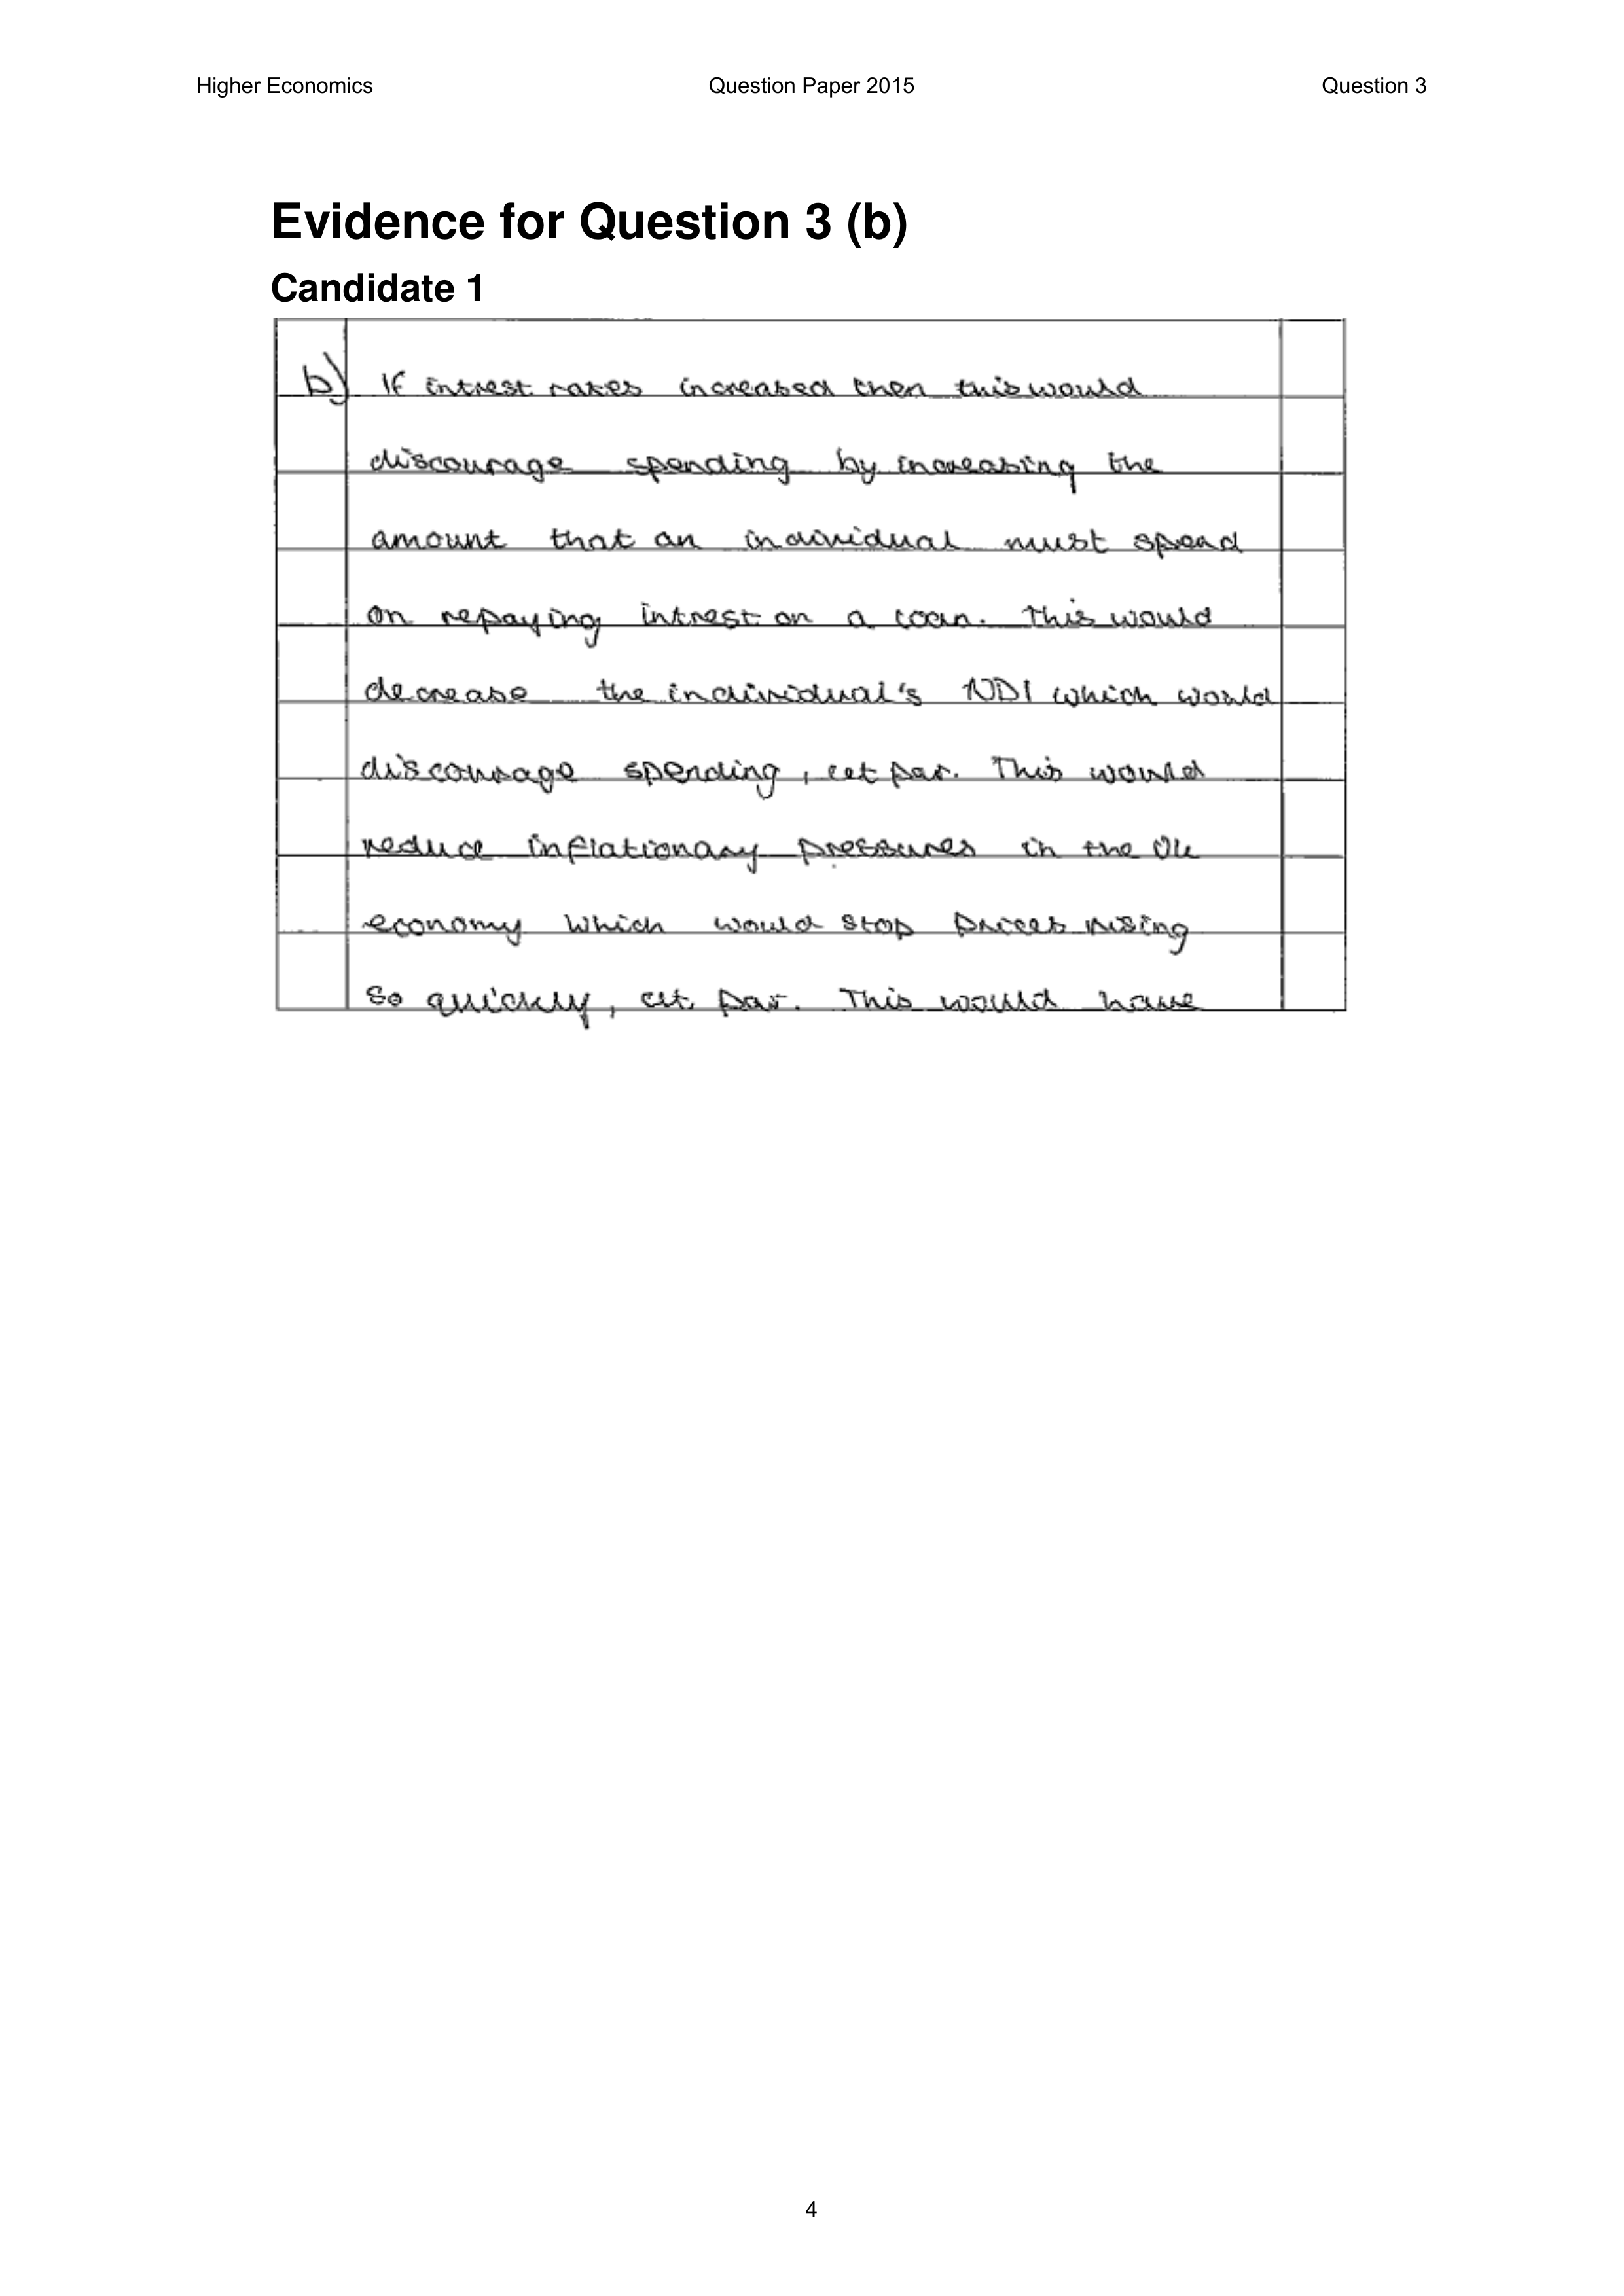 Higher Economics Question Paper 2015 Question 3
Evidence for Question 3 (b)
Candidate 1
b) If intrest rates increased then this would
discourage spending by increasing the
amount that an individual must spend
on repaying intrest on a loan. This would
decrease the individual's NDI which would
discourage spending, cet par. This would
reduce inflationary pressures in the Uk
economy which would stop prices rising
so quickly, cet par. This would have
4